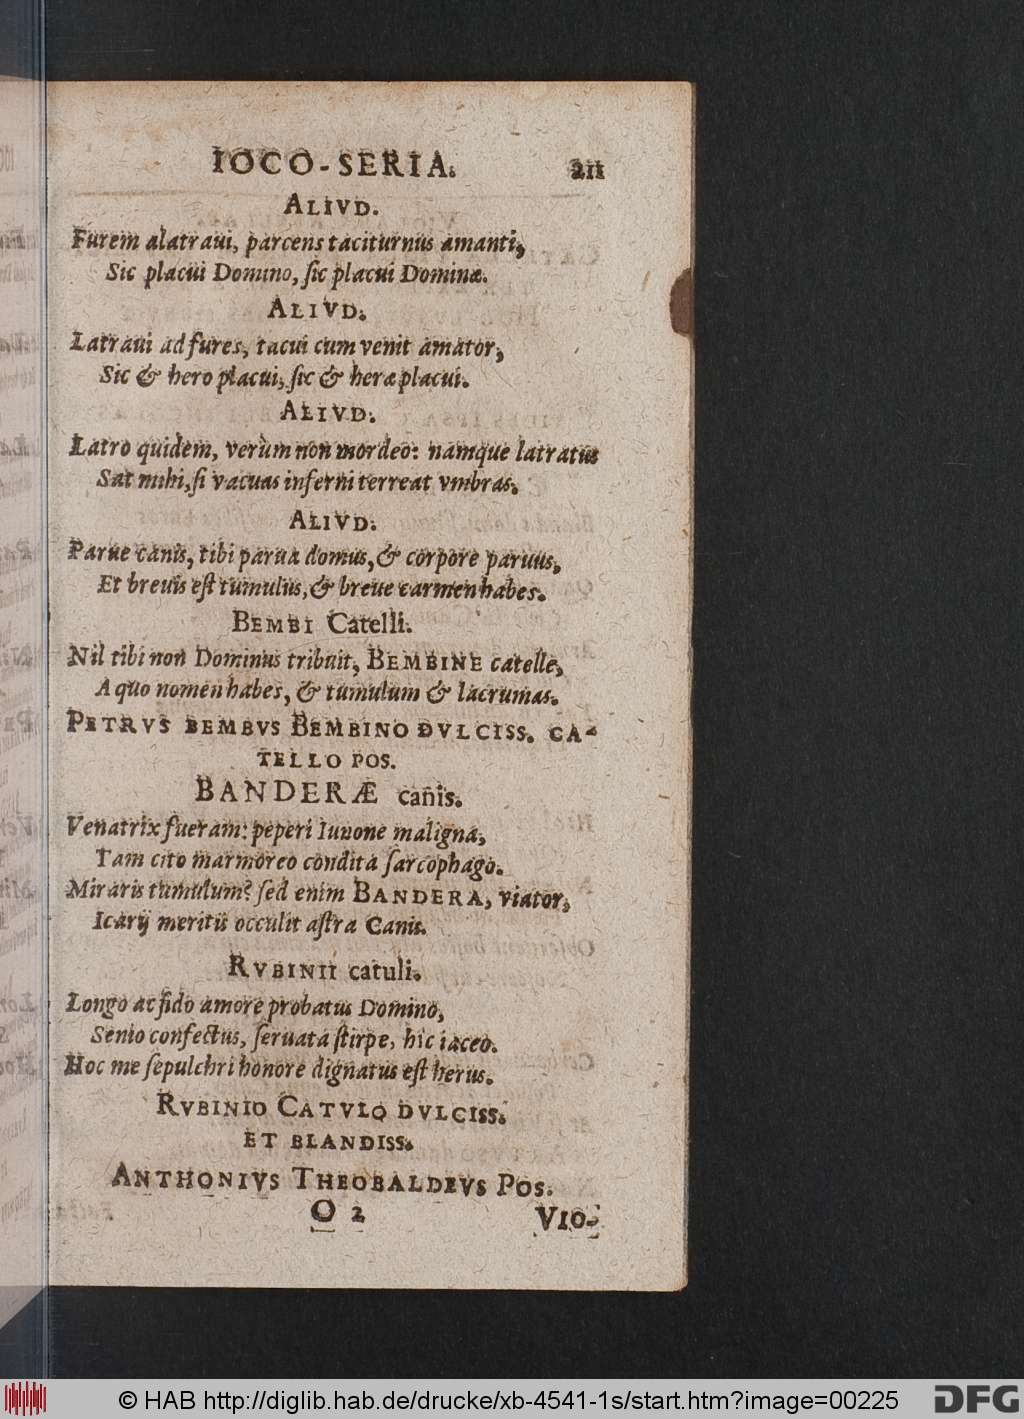 IOCO-SERIA. 211
ALIVD.
Furem alatraui, parcens taciturnus amanti,
Sic placui Domino, ſic placui Dominæ.
ALIVD.
Latraui ad fures, tacui cum venit amator,
Sic & hero placui, ſic & heræ placui.
ALIVD.
Latro quidem, verùm non mordeo: namque latratus
Sat mihi, ſi vacuas inferni terreat vmbras.
ALIVD.
Parue canis, tibi parua domus, & corpore paruus,
Et breuis eſt tumulus, & breue carmen habes.
BEMBI Catelli.
Nil tibi non Dominus tribuit, BEMBINE catelle,
A quo nomen habes, & tumulum & lacrumas.
PETRVS BEMBVS BEMBINO DVLCISS. CA-
TELLO POS.
BANDERÆ canis.
Venatrix fueram: peperi Iunone maligna,
Tam cito marmoreo condita ſarcophago.
Miraris tumulum? ſed enim BANDERA, viator,
Icarij meritis occulit aſtra Canis.
RVBINII catuli.
Longo ac fido amore probatus Domino,
Senio confectus, ſeruata ſtirpe, hîc iaceo.
Hoc me ſepulchri honore dignatus eſt herus.
RVBINIO CATVLO DVLCISS.
ET BLANDISS.
ANTHONIVS THEOBALDEVS POS.
O 2 VIO-
© HAB http://diglib.hab.de/drucke/xb-4541-1s/start.htm?image=00225 DFG